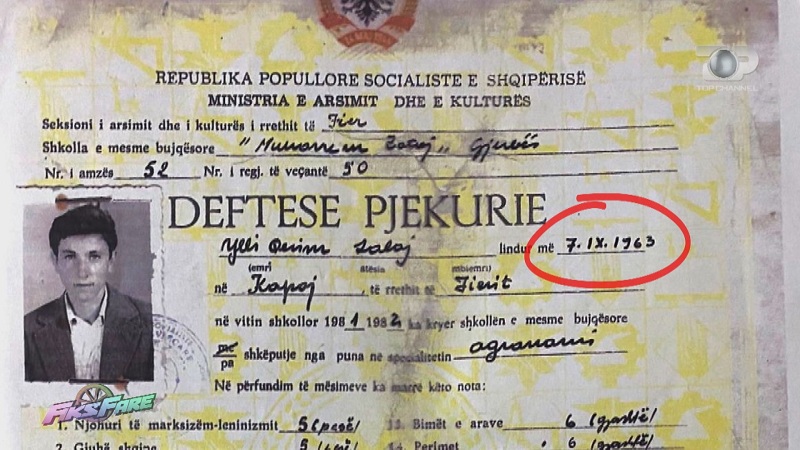 TOP CHANNEL
REPUBLIKA POPULLORE SOCIALISTE E SHQIPËRISË
MINISTRIA E ARSIMIT DHE E KULTURËS
Seksioni i arsimit dhe i kulturës i rrethit të Fier
Shkolla e mesme bujqësore "Muharrem Zalaj" Gjerbës
Nr. i amzës 52 Nr. i regj. të veçantë 50
DEFTESË PJEKURIE
Ylli Qerim Zalaj lindur më 7.IX.1963
(emri atësia mbiemri)
në Kapaj, të rrethit të Fierit
në vitin shkollor 1981 1982 ka kryer shkollën e mesme bujqësore
me
pa shkëputje nga puna në specialitetin agronomi
Në përfundim të mësimeve ka marrë këto nota:
1. Njohuri të marksizëm-leninizmit 5 (pesë) 13. Bimët e arave 6 (gjashtë)
2. Gjuhë shqipe 5 (pesë) 14. Perimet 6 (gjashtë)
FIKS FARE